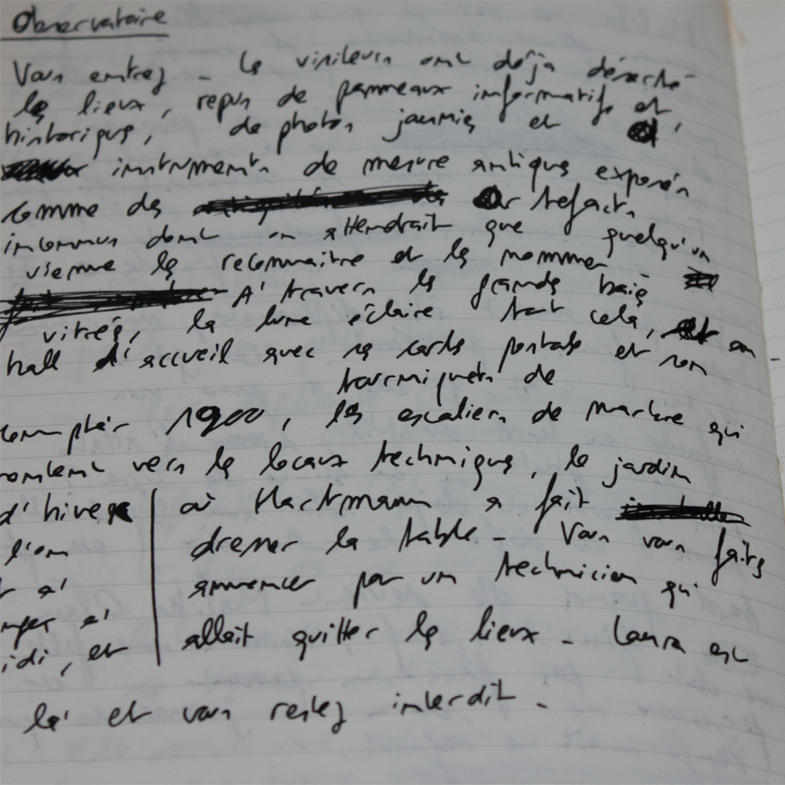 Observatoire
Vous entrez - Les visiteurs ont déjà déserté
les lieux, repus de panneaux informatifs et
historiques, de photos jaunies et
instruments de mesure antiques exposés
comme des artefacts
inconnus dont on attendrait que quelqu'un
vienne les reconnaître et les nommer
A travers les grandes baies
vitrées, la lune éclaire tout cela, un
hall d'accueil avec ses cartes postales et son
tourniquets de
comptoir 1900, les escaliers de marbre qui
montent vers les locaux techniques, le jardin
d'hiver où Hartmann a fait
l'on dresser la table - Vous vous faites
à annoncer par un technicien qui
à allait quitter les lieux - Laura est
midi, et
là et vous restez interdit -